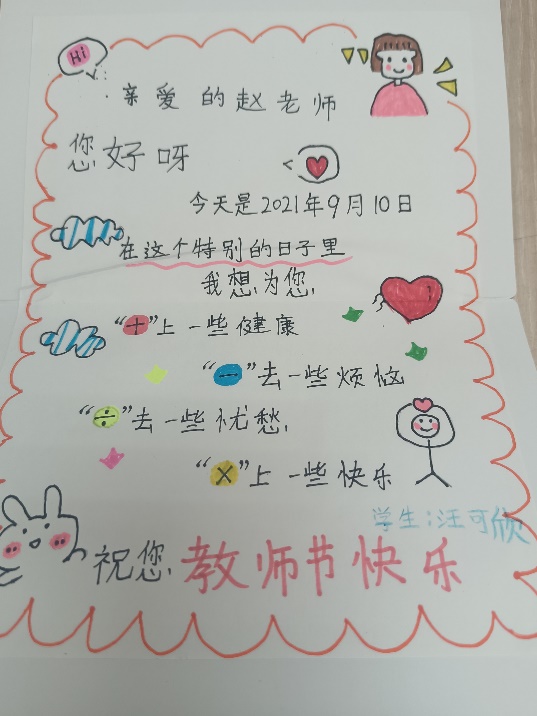 Hi
亲爱的赵老师
您好呀
今天是2021年9月10日
在这个特别的日子里
我想为您
“+”上一些健康
“-”去一些烦恼
“÷”去一些忧愁
“×”上一些快乐
学生:汪可欣
祝您教师节快乐